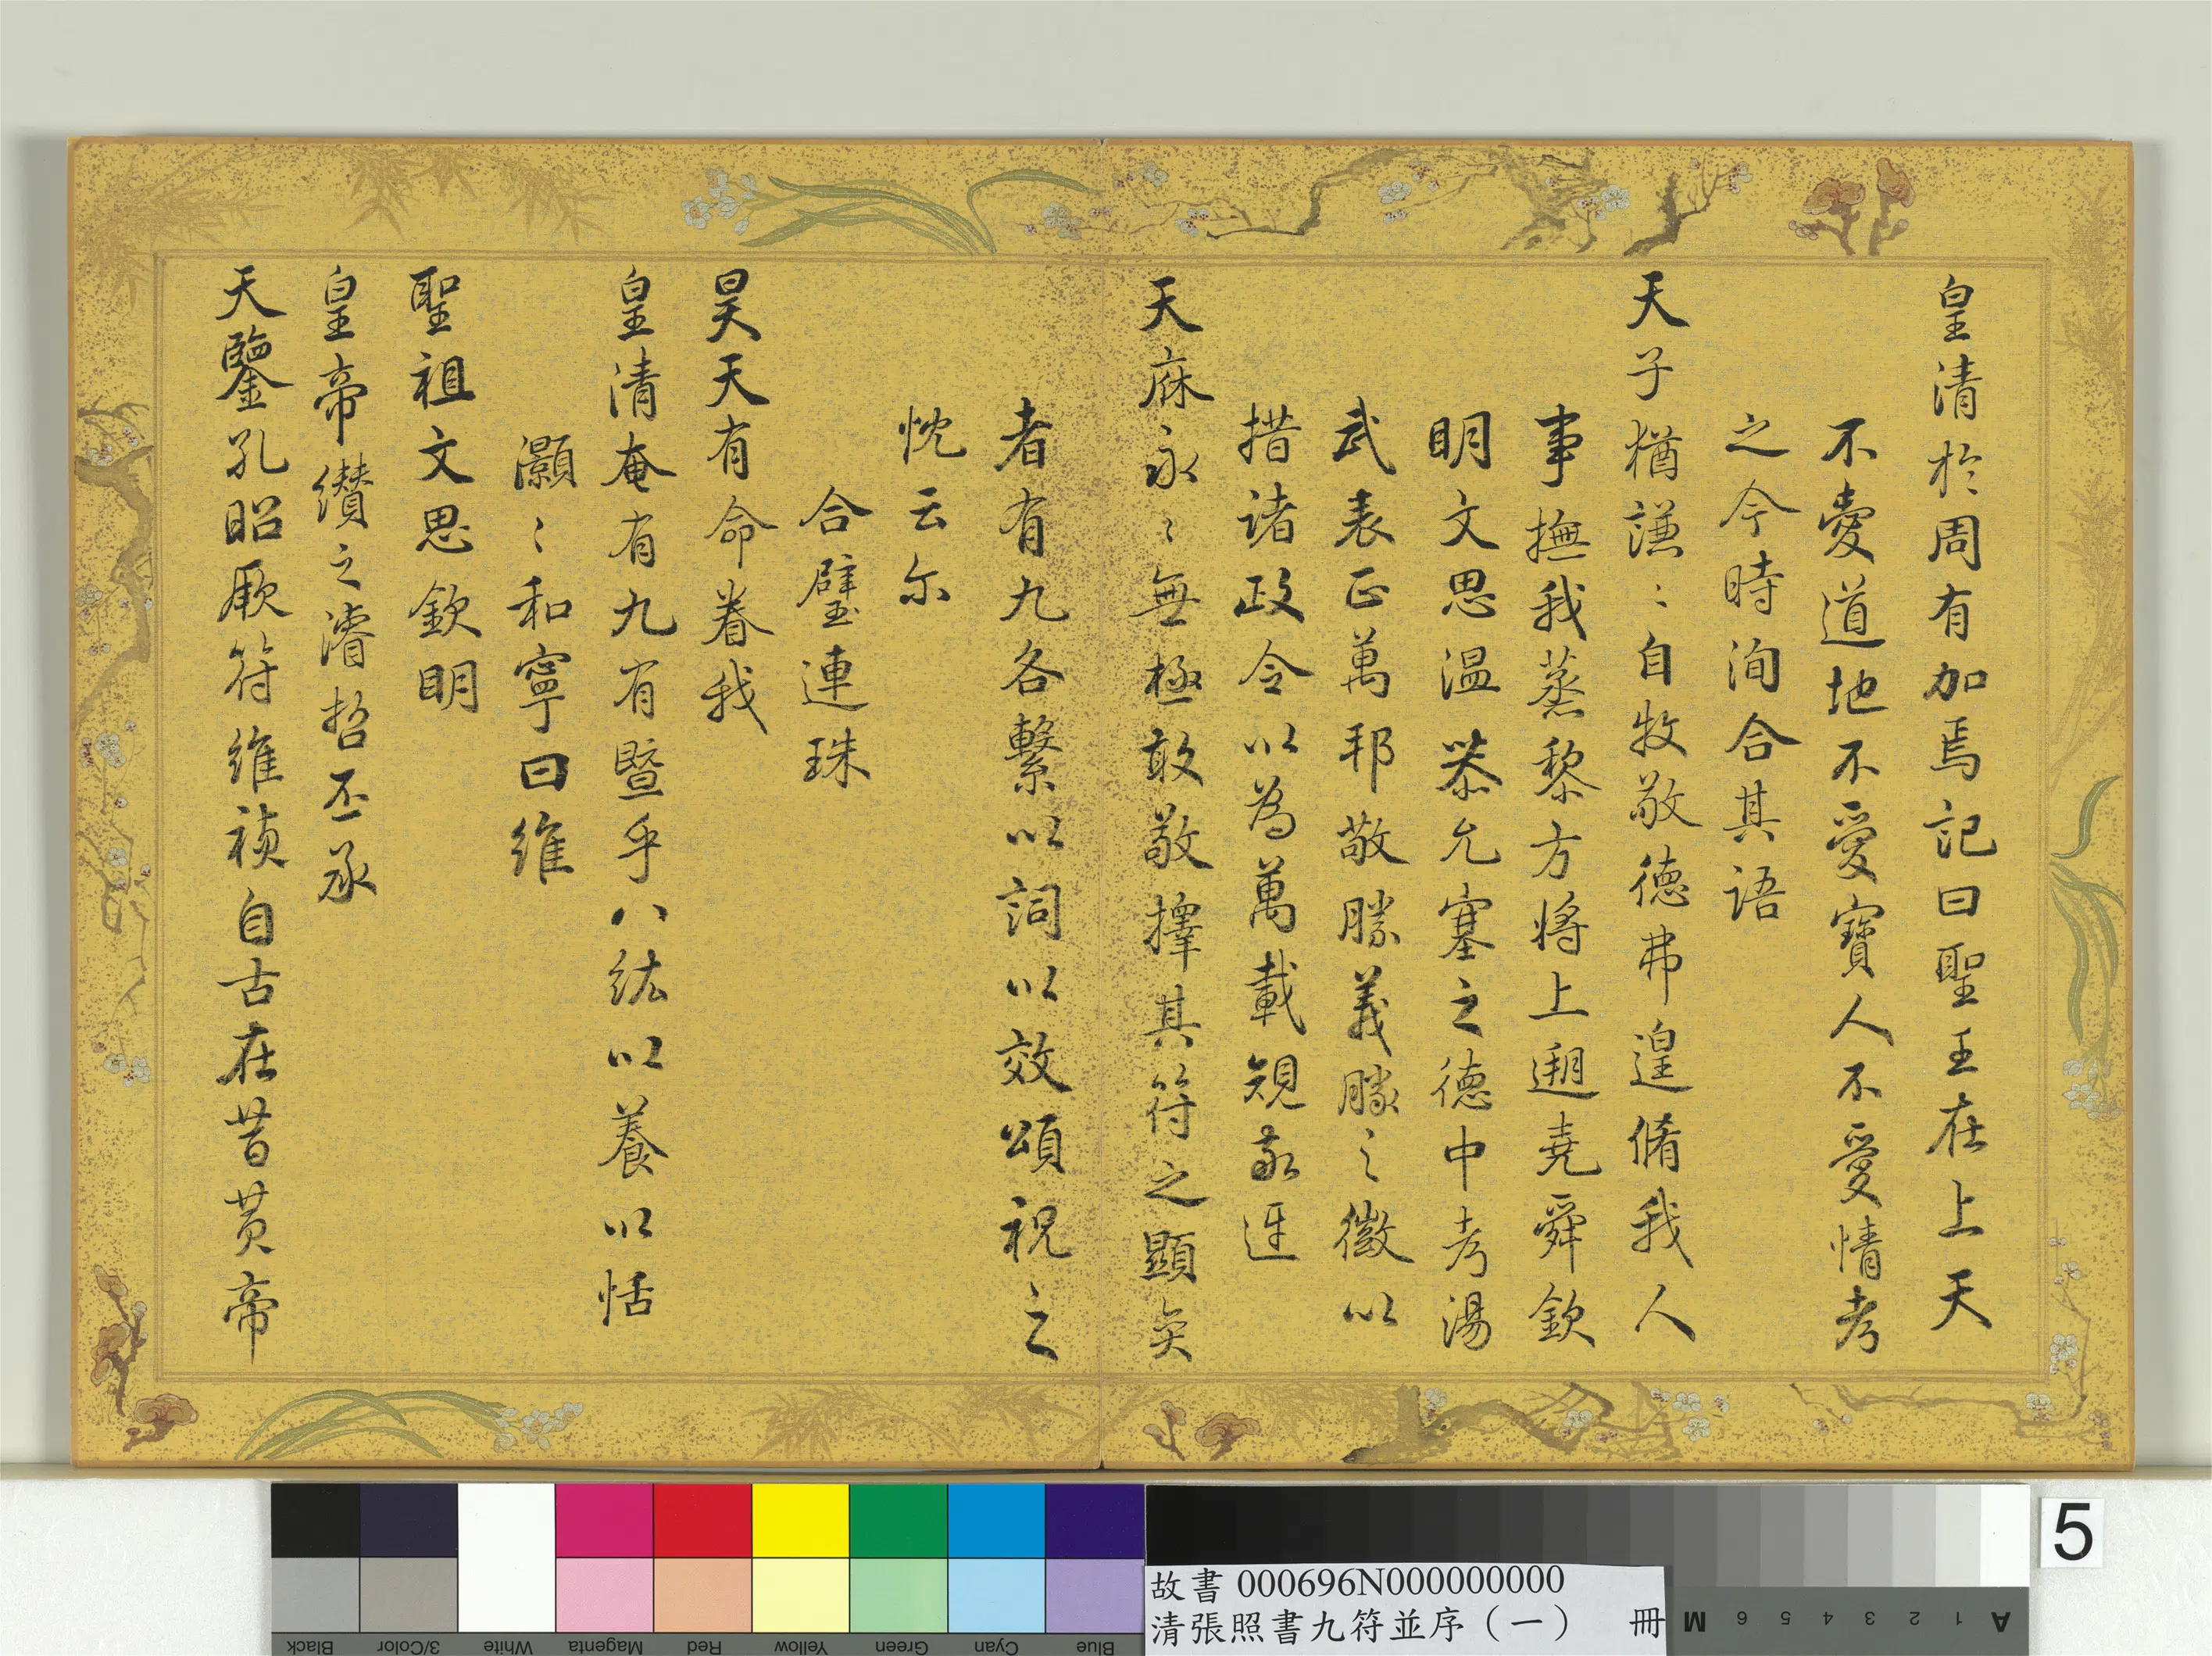 皇清於周有加焉記曰聖王在上天
不愛道地不愛寶人不愛情考
之今時洵合其語
天子猶謙〻自牧敬德弗遑脩我人
事撫我蒸黎方將上遡堯舜欽
明文思溫恭允塞之德中考湯
武表正萬邦敬勝義勝之徵以
措諸政令以為萬載規永迓
天庥永〻無極敢敬擇其符之顯奕
者有九各繫以詞以效頌祝之
忱云尔
合璧連珠
昊天有命眷我
皇清奄有九有暨乎八紘以養以恬
灝〻和寧曰維
聖祖文思欽明
皇帝纘之濬哲丕承
天鑒孔昭厥符維禎自古在昔黄帝
Black
3/Color
White
Magenta
Red
Yellow
Green
Cyan
Blue
故書 000696N000000000
清張照書九符並序（一） 冊
M 6 5 4 3 2 1 A
5